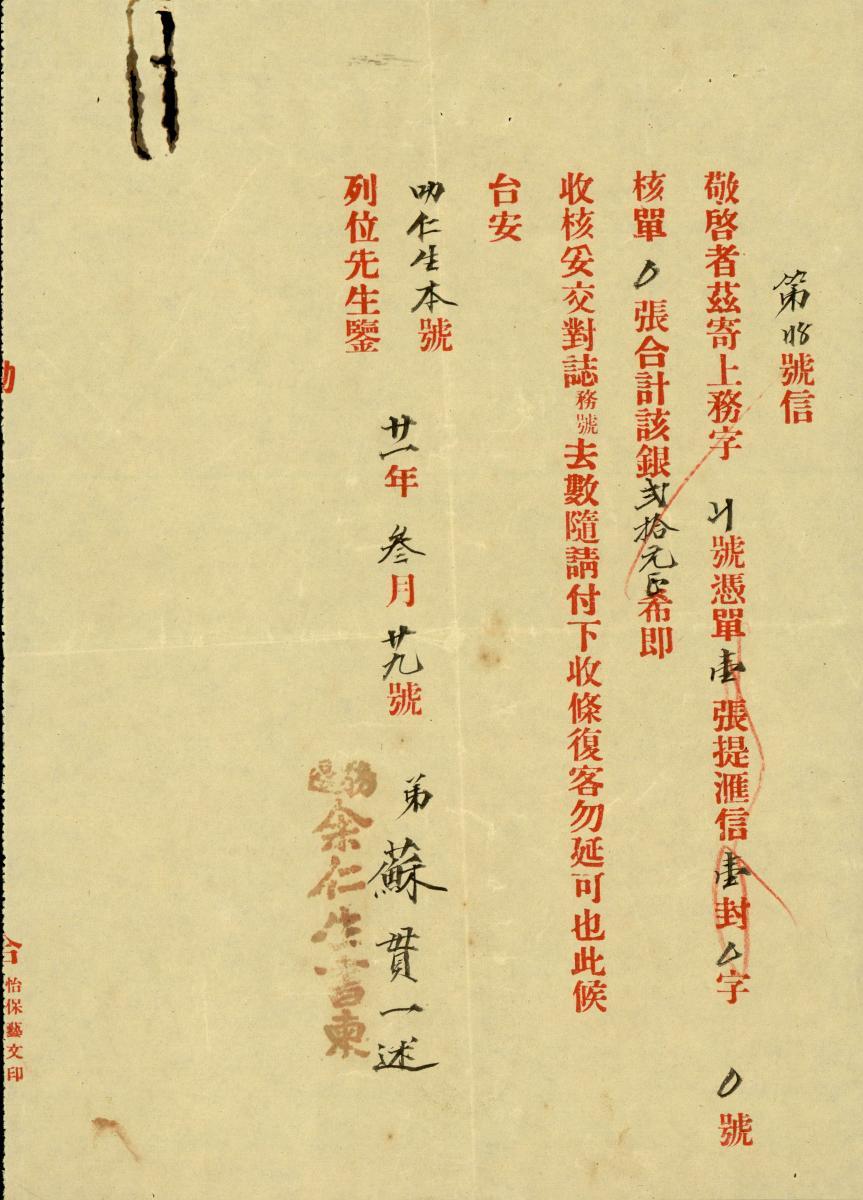 第〢〨號信
敬啓者茲寄上務字〢〡號憑單壹張提滙信壹封〇字〇號
核單〇張合計該銀弍拾元正希即
收核妥交對誌務號去數隨請付下收條復客勿延可也此候
台安
叻仁生本號
列位先生鑒
廿一年叁月廿九號
弟蘇貫一述
務邊
余仁生書柬
怡保藝文印